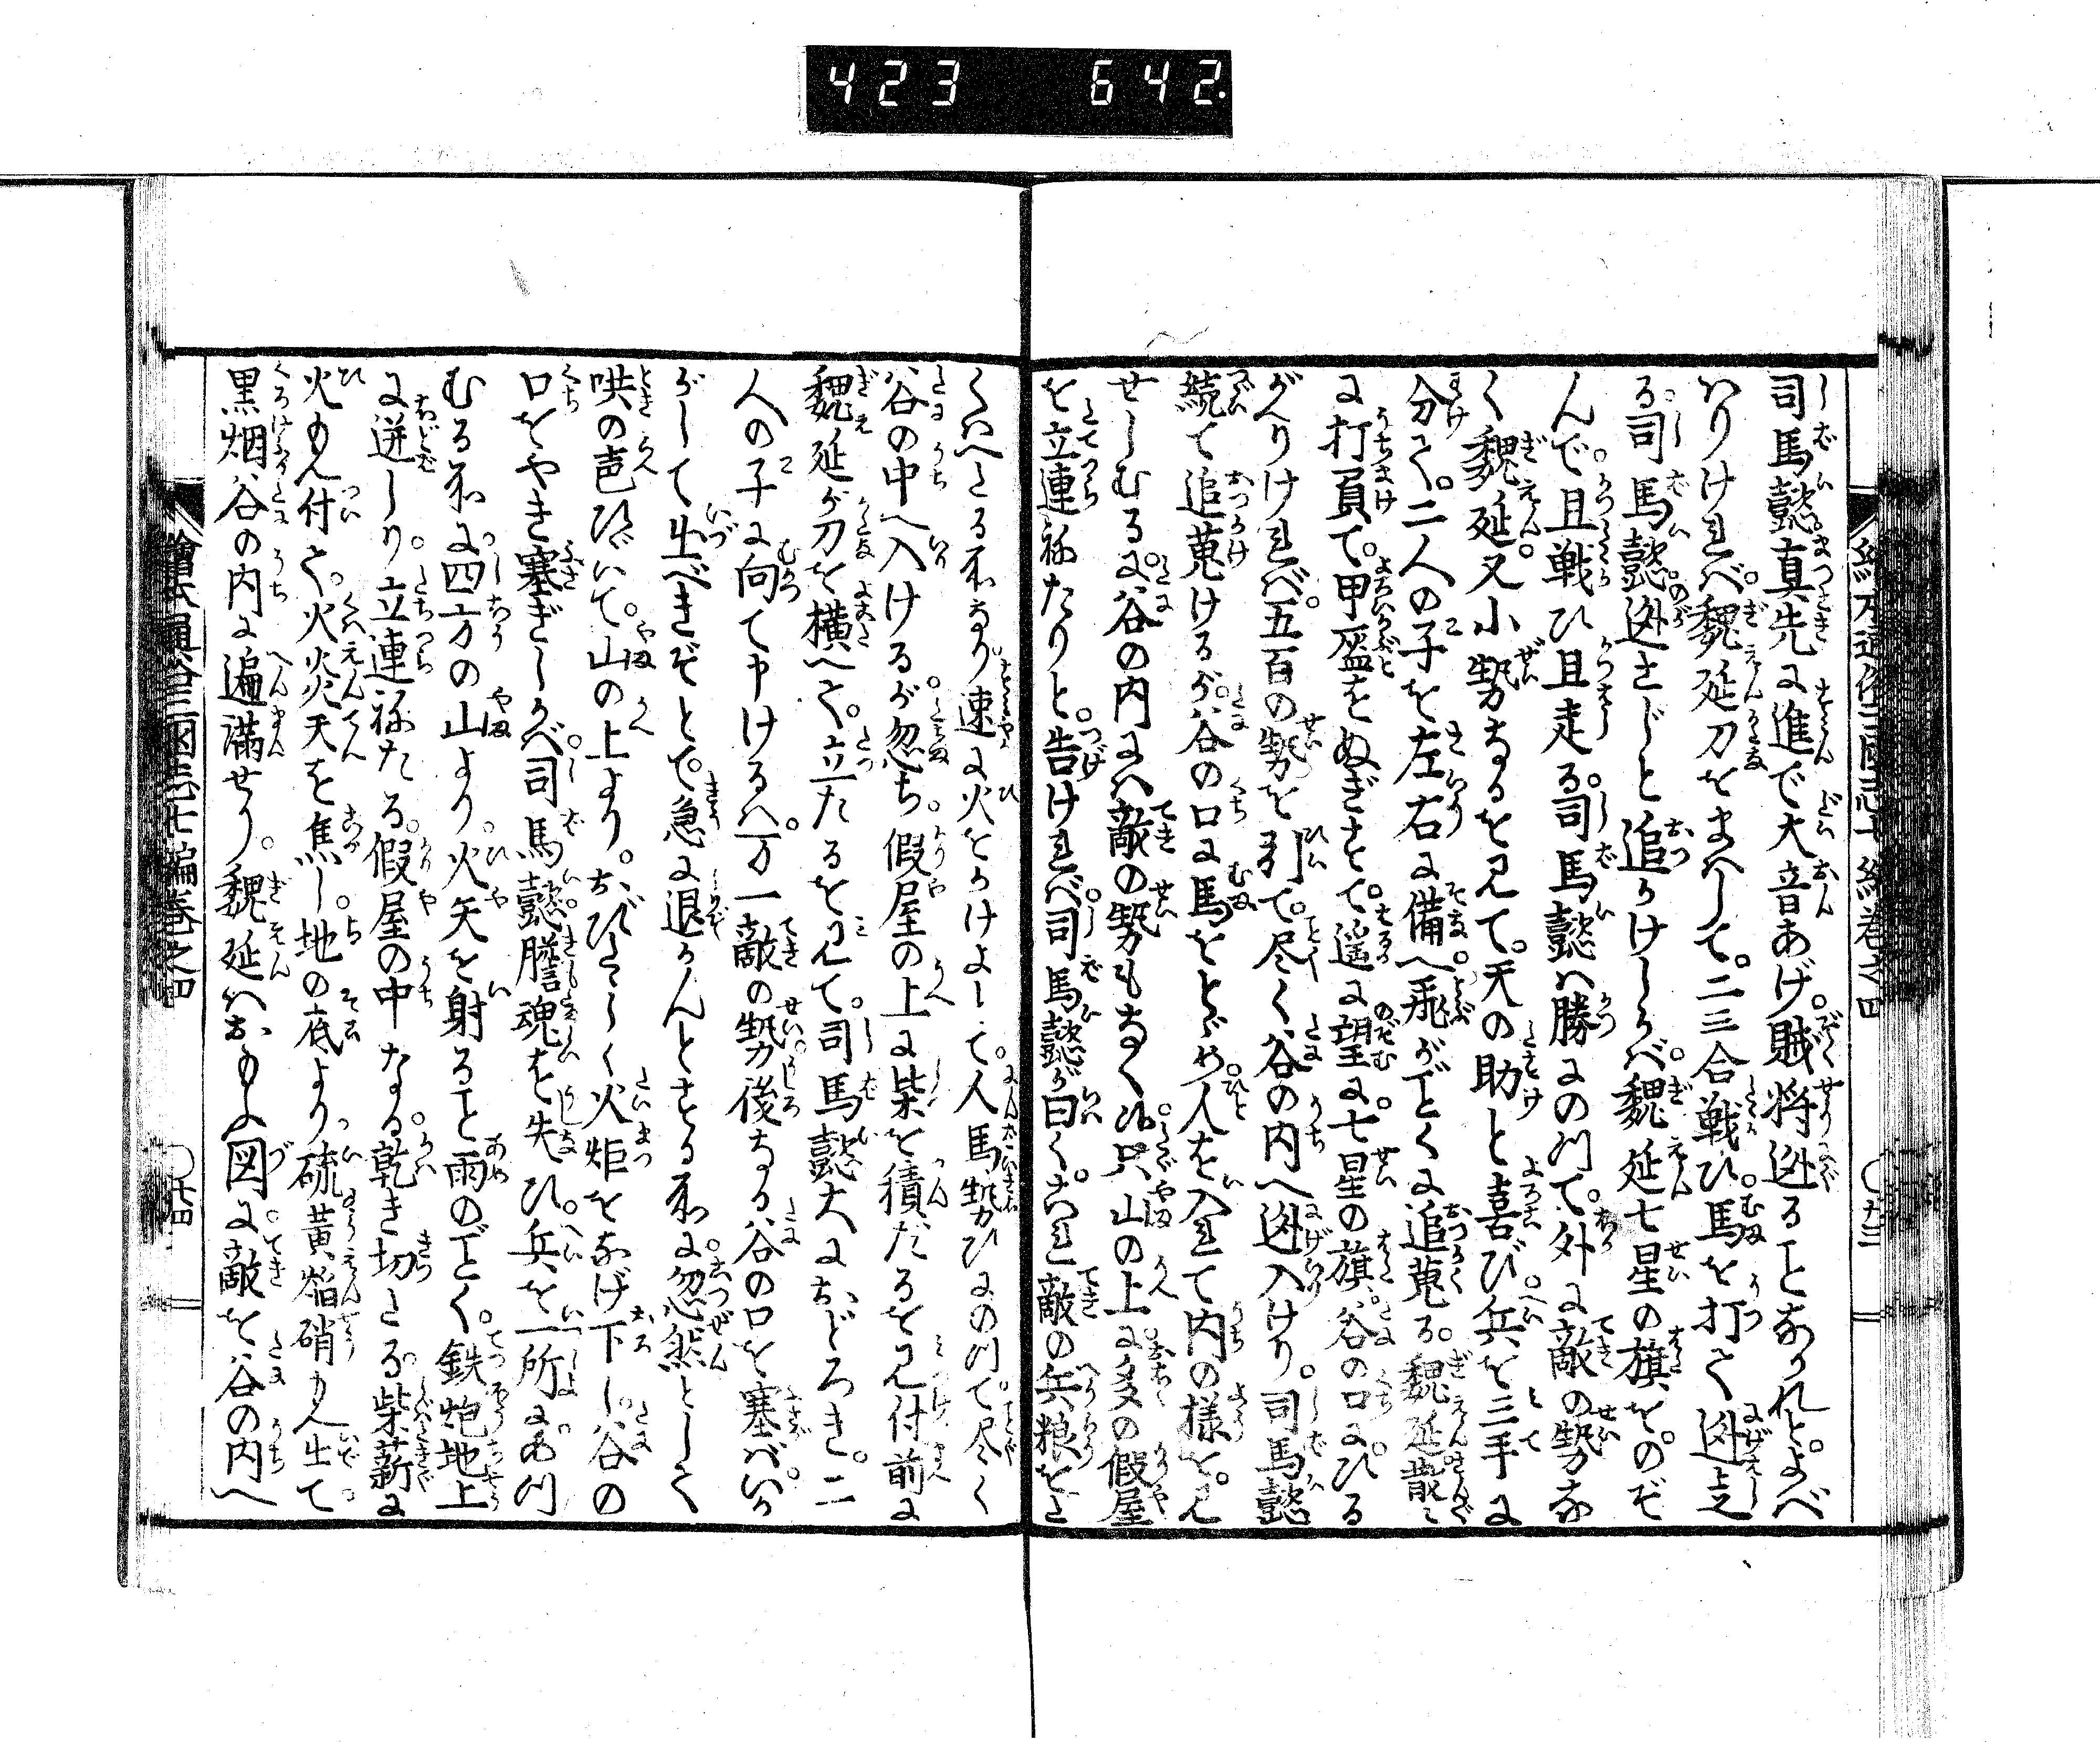 423 642.
司馬懿真先に進で大音あげ。賊将逃ることなかれとよべ
はりければ。魏延刀をまへして。二三合戦ひ。馬を打て逃走
る。司馬懿逃さじと追かけしかば。魏延七星の旗をのぞ
んで。且戦ひ且走る。司馬懿は勝にのつて。外に敵の勢な
く魏延。又小勢なるを見て。天の助と喜び。兵を三手に
分て。二人の子を左右に備へ。飛がごとくに追蒐る。魏延散々
に打負て。甲盔をぬぎすて。遥に望に。七星の旗。谷の口にひる
がへりければ。五百の勢を引て。尽く谷の内へ逃入けり。司馬懿
続て追蒐けるが。谷の口に馬をとゞめ。人を入れて内の様を。見
せしむるに。谷の内には敵の勢もなく候。只山の上に。多の假屋
を立連ねたりと。告ければ。司馬懿が曰く。これ敵の兵粮をた
くはへたる所なり。速に火をかけよして。人馬勢ひにのつて。尽く
谷の中へ入けるが。忽ち假屋の上に柴を積だるを見付。前に
魏延が刀を横へて。立たるを見て。司馬懿大におどろき。二
人の子に向て申けるは。万一敵の勢後なる谷の口を塞ば。いか
がして生べきぞとて。急に退かんとする所に。忽然として
哄の声ひゞいて。山の上より。おびたゝしく火炬をなげ下し。谷の
口をやき塞ぎしかば。司馬懿膽魂を失ひ。兵を一所にあつ
むる所に。四方の山より。火矢を射ること雨のごとく。鉄炮地上
に迸しり。立連ねたる。假屋の中なる。乾き切たる。柴薪に
火もえ付て。火炎天を焦し。地の底より硫黄焔硝もえ出て。
黒烟谷の内に遍満せり。魏延はおもふ図に。敵を谷の内へ
繪本通俗三國志七編巻之四